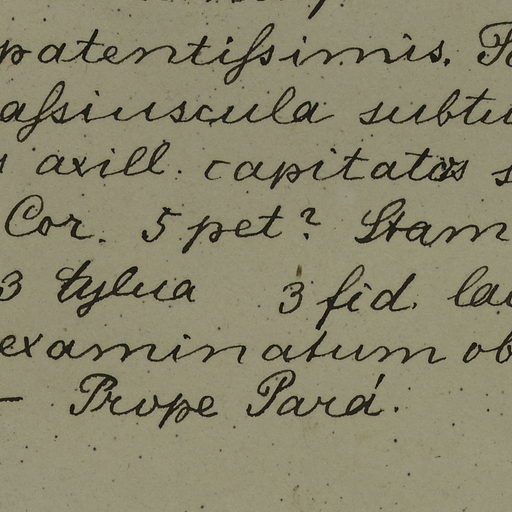 patentiſsimis.
aſsiuscula subtu
axill. capitatas s
Cor. 5 pet? Stam
3 stylua 3 fid. la
examinatum ob
– Prope Pará.